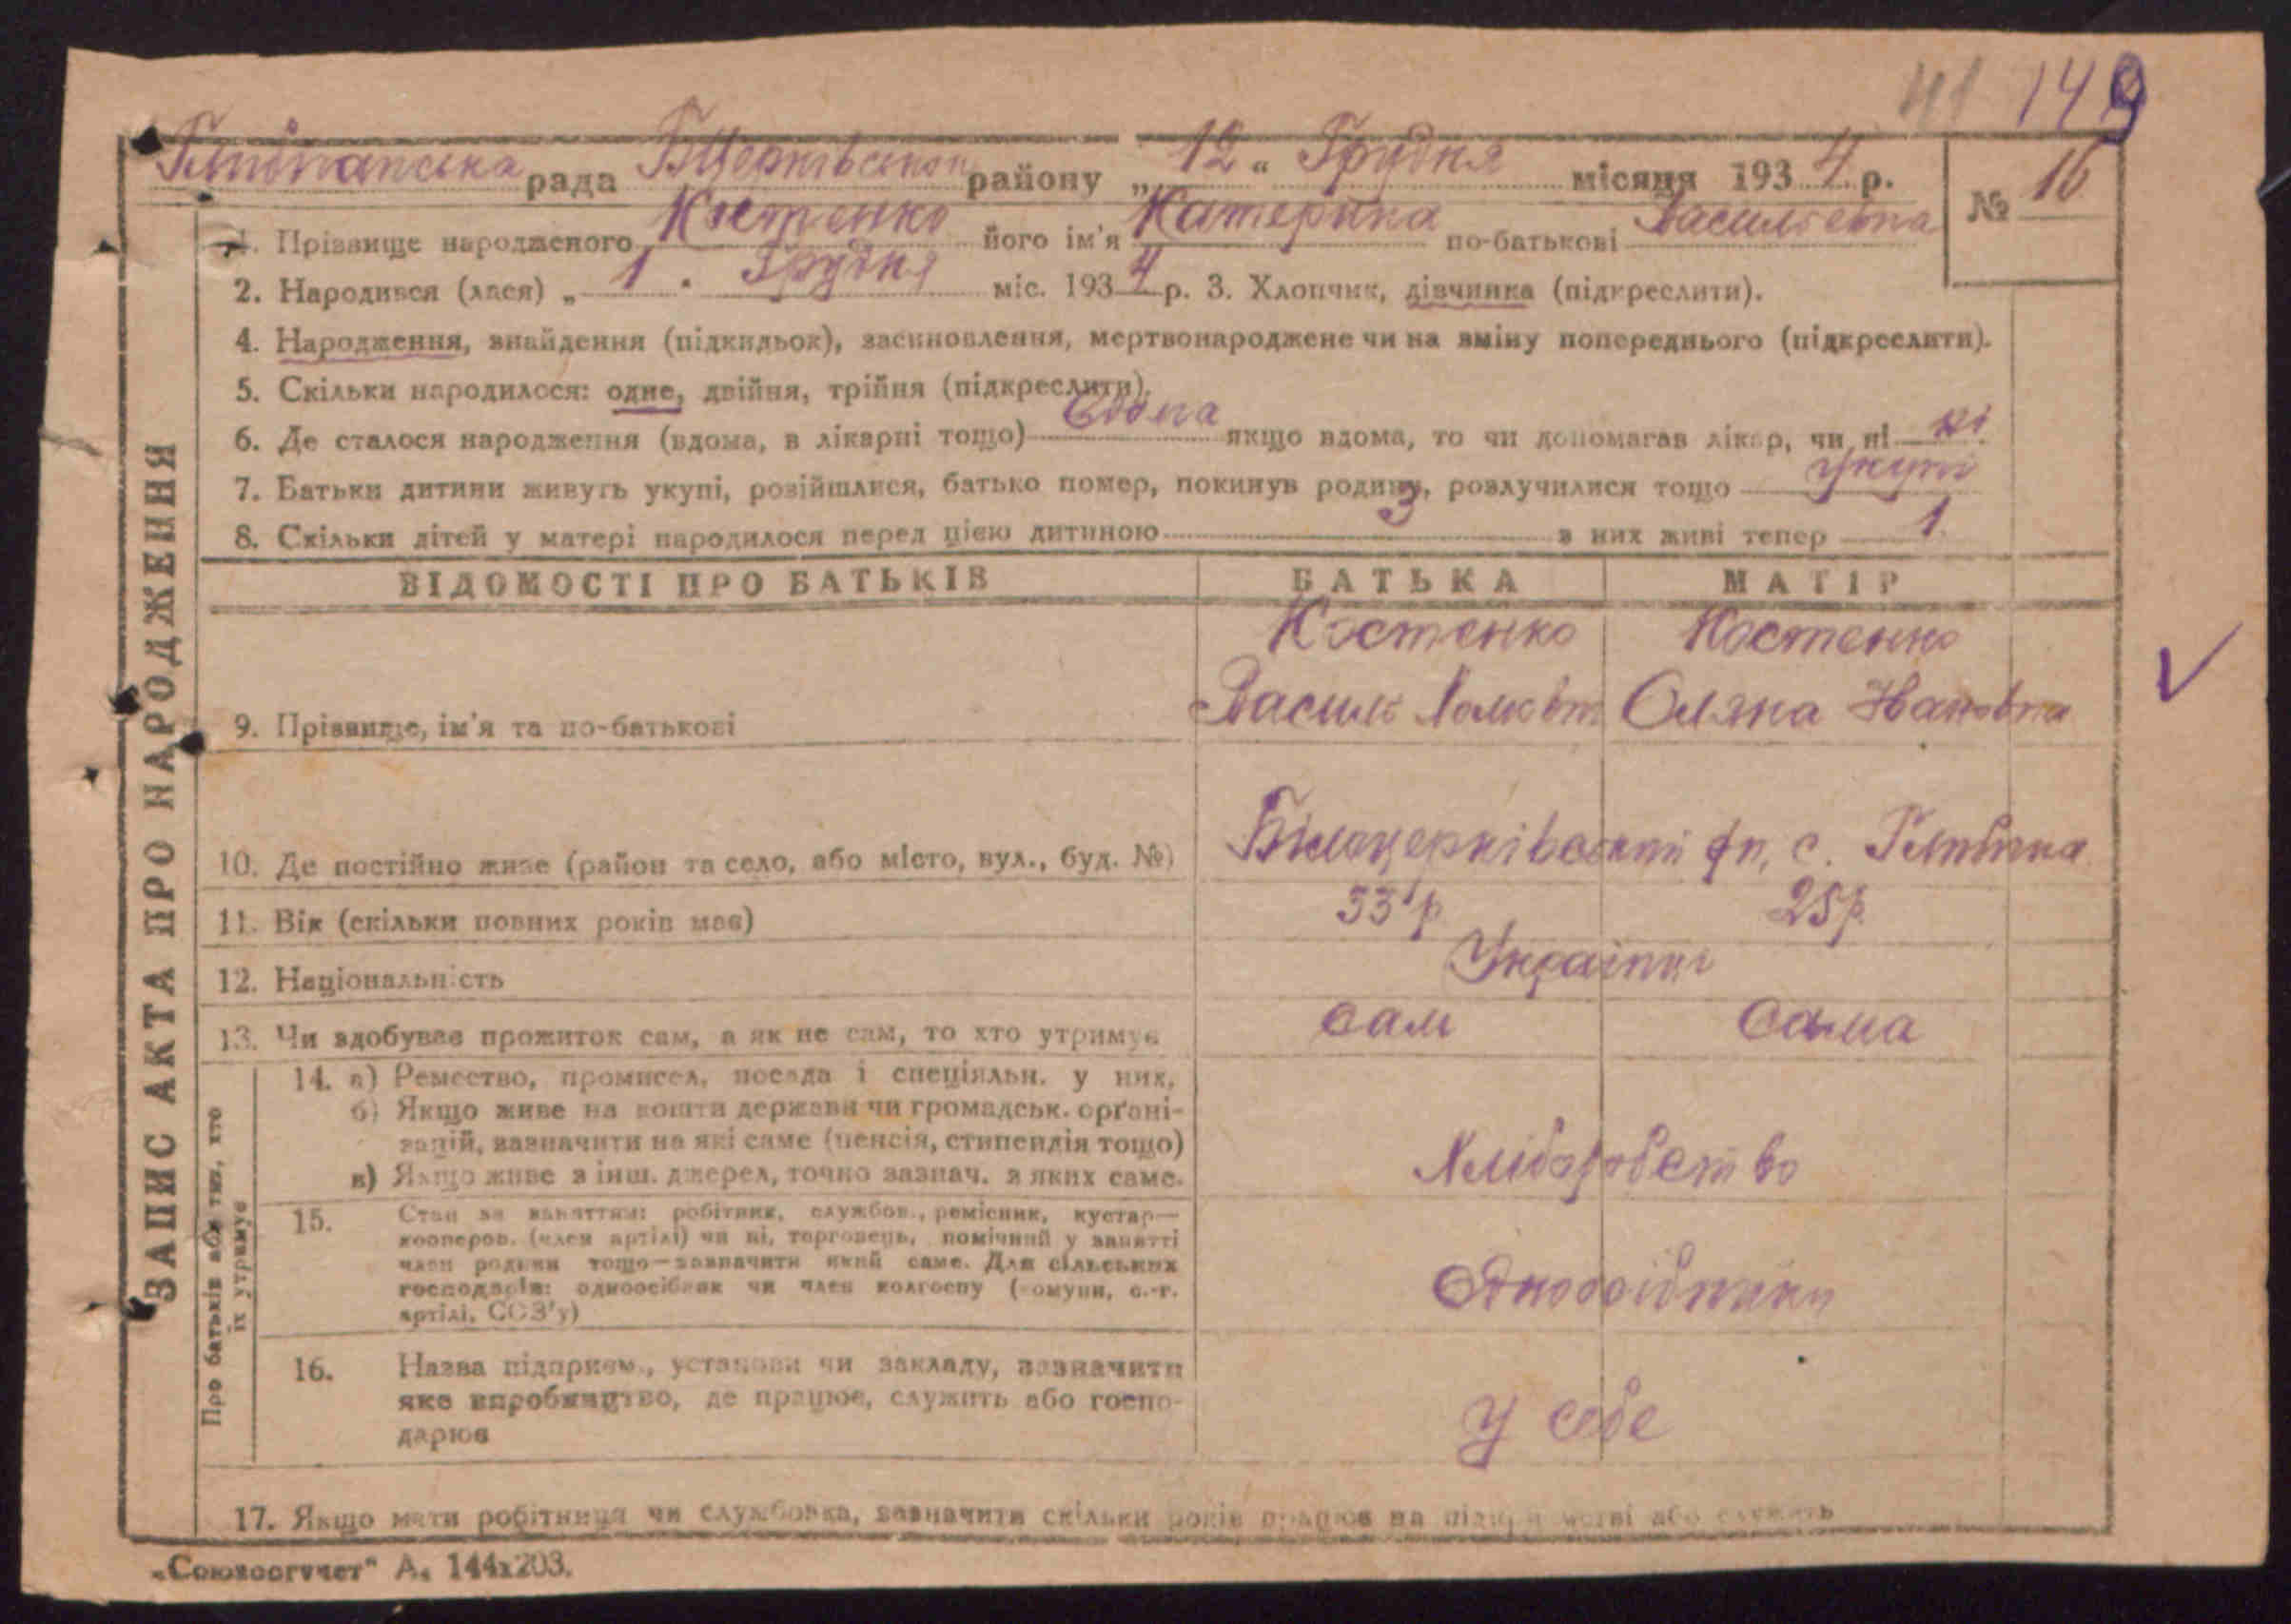 41 149
рада БЦерківської району „12“ Грудня місяця 1934 р. № 16
1. Прізвище народженого Костенко його ім'я Катерина по-батькові Васильевна
2. Народився (лася) „1“ Грудня міс. 1934 р. 3. Хлопчик, дівчинка (підкреслити).
4. Народження, знайдення (підкидьок), засиновлення, мертвонароджене чи на зміну попереднього (підкреслити).
5. Скільки народилося: одне, двійня, трійня (підкреслити).
6. Де сталося народження (вдома, в лікарні тощо) вдома якщо вдома, то чи допомагав лікар, чи ні ні
7. Батьки дитини живуть укупі, розійшлися, батько помер, покинув родину, розлучилися тощо укупі
8. Скільки дітей у матері народилося перед цією дитиною 3 з них живі тепер 1
ЗАПИС АКТА ПРО НАРОДЖЕННЯ
ВІДОМОСТІ ПРО БАТЬКІВ БАТЬКА МАТІР
Костенко Костенко
9. Прізвище, ім'я та по-батькові Василь Оляна Ивановна
10. Де постійно живе (район та село, або місто, вул., буд. №) Білоцерківський рн, с.
11. Вік (скільки повних років має) 33 р 25 р
12. Національність Українці
13. Чи здобуває прожиток сам, а як не сам, то хто утримує сам сама
Про батьків або тих, хто
їх утримує
14. а) Ремество, промисел, посада і спеціяльн. у них.
б) Якщо живе на кошти держави чи громадськ. орґані-
зацій, зазначити на які саме (пенсія, стипендія тощо)
в) Якщо живе з інш. джерел, точно зазнач. з яких саме.
Хліборобство
15. Стан за заняттям: робітник, службов., ремісник, кустар—
кооперов. (член артілі) чи ні, торговець, помічний у занятті
член родини тощо—зазначити який саме. Для сільських
господарів: одноосібник чи член колгоспу (комуни, с.-г.
артілі, СОЗ'у)
Одноосібники
16. Назва підприєм., установи чи закладу, зазначити
яке виробництво, де працює, служить або госпо-
дарює
У себе
17. Якщо мати робітниця чи службовка, зазначити скільки років працює на підприємстві або служить
„Союзоргучет“ А₄ 144х203.